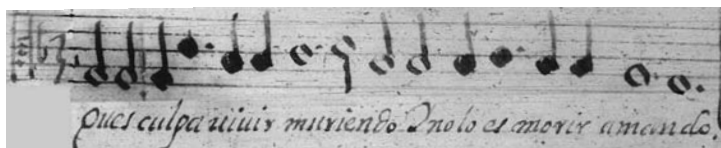 Pues culpa uiuir muriendo Q̃ no lo es morir amando.